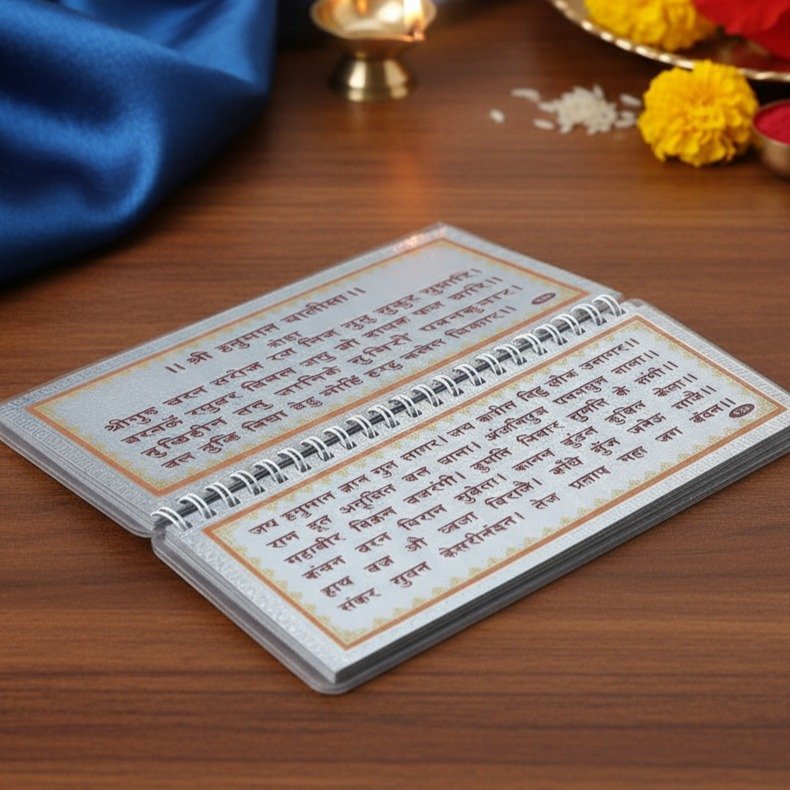 ।। श्री हनुमान चालीसा।।
दोहा
श्रीगुरु चरन सरोज रज निज मुनु मुकुर सुधारि।
बरनऊं रघुबर बिमल जसु जो दायक फल चारि।।
बुद्धिहीन तनु जानिके सुमिरौ पवनकुमार।
बल बुद्धि विद्या देहु मोहिं हरहु कलेस विकार।।
जय हनुमान ज्ञान गुन सागर। जय कपीस तिहुं लोक उजागर।।
राम दूत अतुलित बल धामा। अंजनिपुत्र पवनसुत नामा।।
महाबीर बिक्रम बजरंगी। कुमति निवार सुमति के संगी।।
कंचन बरन बिराज सुबेसा। कानन कुंडल कुंचित केसा।।
हाथ बज्र औ ध्वजा बिराजे। कांधे मूंज जनेऊ साजे।।
संकर सुवन केसरीनंदन। तेज प्रताप महा जग बंदन।।